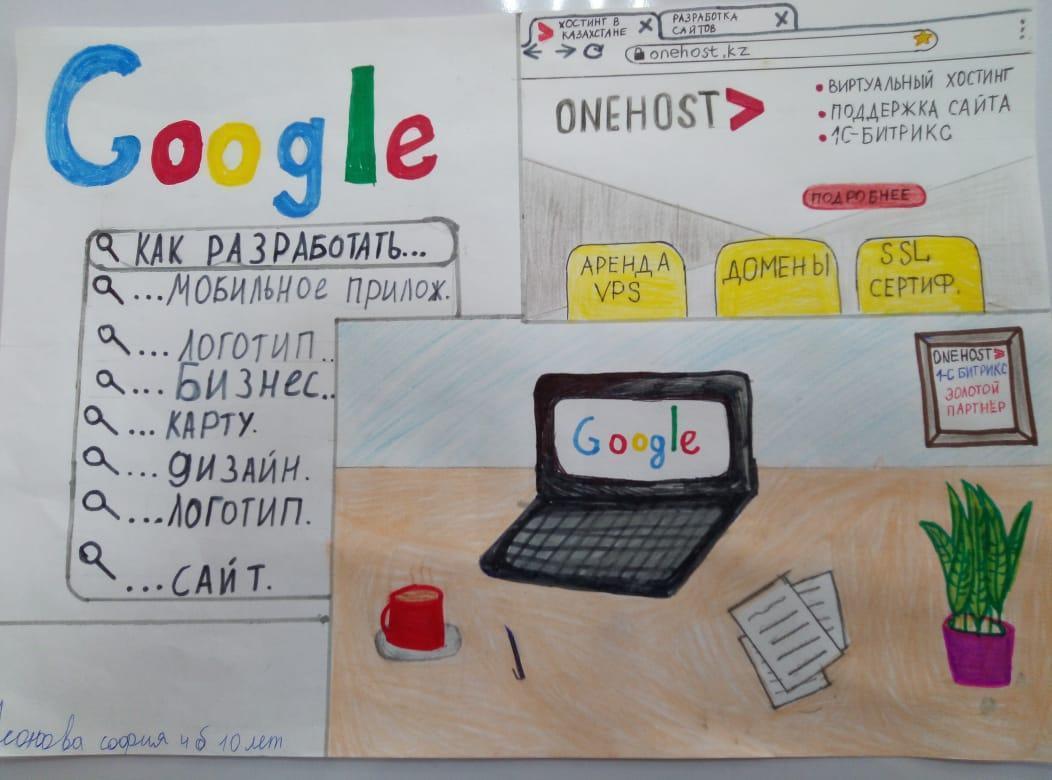 Google
КАК РАЗРАБОТАТЬ...
...МОБИЛЬНОЕ ПРИЛОЖ.
...ЛОГОТИП..
...БИЗНЕС..
...КАРТУ.
...ДИЗАЙН.
...ЛОГОТИП.
...САЙТ.
ХОСТИНГ В
КАЗАХСТАНЕ X
РАЗРАБОТКА
САЙТОВ X
onehost.kz
ONEHOST>
• ВИРТУАЛЬНЫЙ ХОСТИНГ
• ПОДДЕРЖКА САЙТА
• 1С-БИТРИКС
ПОДРОБНЕЕ
АРЕНДА
VPS
ДОМЕНЫ
SSL
СЕРТИФ.
ONEHOST>
1-С БИТРИКС
ЗОЛОТОЙ
ПАРТНЁР
Google
софия 4 б 10 лет